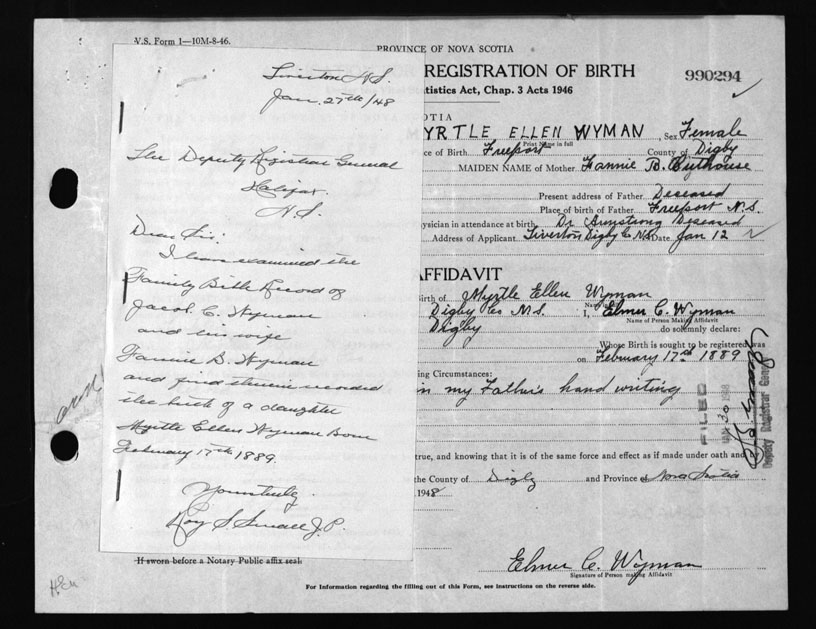 V.S. Form 1—10M-8-46.
PROVINCE OF NOVA SCOTIA
REGISTRATION OF BIRTH
990294
tistics Act, Chap. 3 Acts 1946
Tiverton N.S.
Jan. 27th/48
The Deputy Registrar General
Halifax
N.S.
Dear Sir:
I have examined the
Family Bible Record of
Jacob C. Wyman
and his wife
Fannie B. Wyman
and find therein recorded
the birth of a daughter
Myrtle Ellen Wyman Born
February 17th 1889.
Yours truly
Roy S. Small J.P.
OTIA
MYRTLE ELLEN WYMAN, Sex Female
Print Name in full
ce of Birth Freeport County of Digby
MAIDEN NAME of Mother Fannie B. Outhouse
Present address of Father Deceased
Place of birth of Father Freeport N.S.
ysician in attendance at birth Dr Armstrong Deceased
Address of Applicant Tiverton, Digby Co N.S. Date Jan 12
AFFIDAVIT
irth of Myrtle Ellen Wyman
Digby Co N.S. I, Elmer C. Wyman
Name of Person Making Affidavit
Digby do solemnly declare:
Whose Birth is sought to be registered was
on February 17th 1889
ing Circumstances:
in my Father's hand writing
FILED
Deputy Registrar General
true, and knowing that it is of the same force and effect as if made under oath and
the County of Digby and Province of Nova Scotia
1948
Elmer C. Wyman
Signature of Person making Affidavit
If sworn before a Notary Public affix seal.
For Information regarding the filling out of this Form, see instructions on the reverse side.